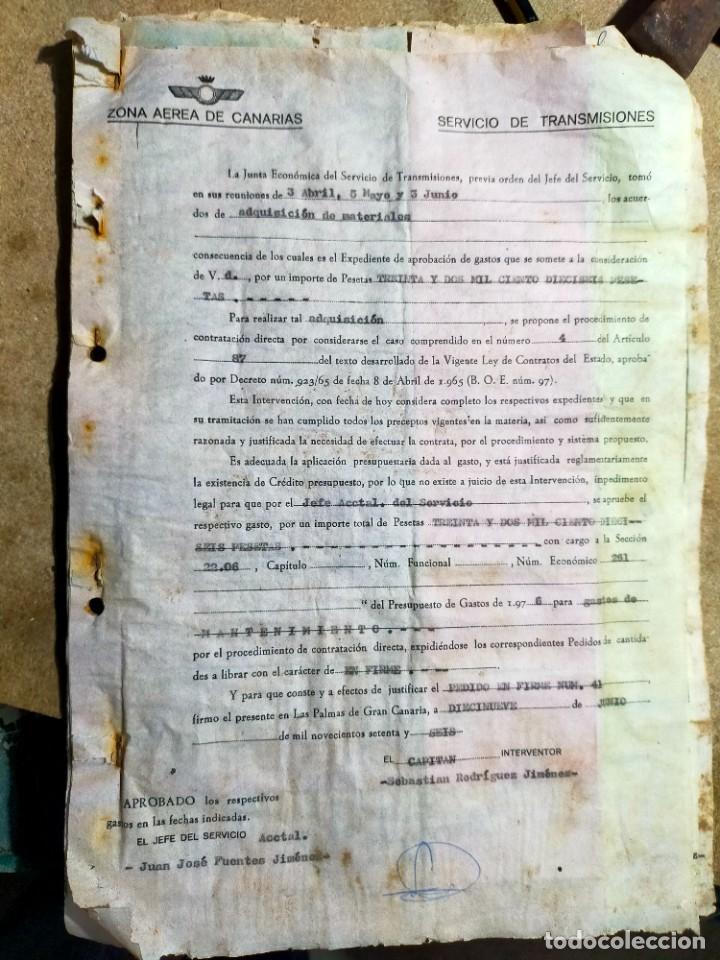 ZONA AEREA DE CANARIAS
SERVICIO DE TRANSMISIONES
La Junta Económica del Servicio de Transmisiones, previa orden del Jefe del Servicio, tomó
en sus reuniones de 3 Abril, 5 Mayo y 3 Junio, los acuer-
dos de adquisición de materiales
consecuencia de los cuales es el Expediente de aprobación de gastos que se somete a la consideración
de V. d., por un importe de Pesetas TREINTA Y DOS MIL CIENTO DIECISEIS PESE-
TAS.-----
Para realizar tal adquisición, se propone el procedimiento de
contratación directa por considerarse el caso comprendido en el número 4 del Artículo
87 del texto desarrollado de la Vigente Ley de Contratos del Estado, aproba-
do por Decreto núm. 923/65 de fecha 8 de Abril de 1.965 (B. O. E. núm. 97).
Esta Intervención, con fecha de hoy considera completo los respectivos expedientes y que en
su tramitación se han cumplido todos los preceptos vigentes en la materia, así como suficientemente
razonada y justificada la necesidad de efectuar la contrata, por el procedimiento y sistema propuesto.
Es adecuada la aplicación presupuestaria dada al gasto, y está justificada reglamentariamente
la existencia de Crédito presupuesto, por lo que no existe a juicio de esta Intervención, inpedimento
legal para que por el Jefe Acctal. del Servicio, se apruebe el
respectivo gasto, por un importe total de Pesetas TREINTA Y DOS MIL CIENTO DIECI--
SEIS PESETAS.- - - - - - - - - - - - con cargo a la Sección
22.06, Capítulo, Núm. Funcional, Núm. Económico 261
" del Presupuesto de Gastos de 1.97 6 para gastos de
MANTENIMIENTO.---
por el procedimiento de contratación directa, expidiéndose los correspondientes Pedidos de cantida-
des a librar con el carácter de EN FIRME.----
Y para que conste y a efectos de justificar el PEDIDO EN FIRME NUM. 41
firmo el presente en Las Palmas de Gran Canaria, a DIECINUEVE de JUNIO
de mil novecientos setenta y SEIS-
EL CAPITAN INTERVENTOR
-Sebastian Rodríguez Jiménez-
APROBADO los respectivos
gastos en las fechas indicadas.
EL JEFE DEL SERVICIO Acctal.
- Juan José Fuentes Jiménez-
todocoleccion.net